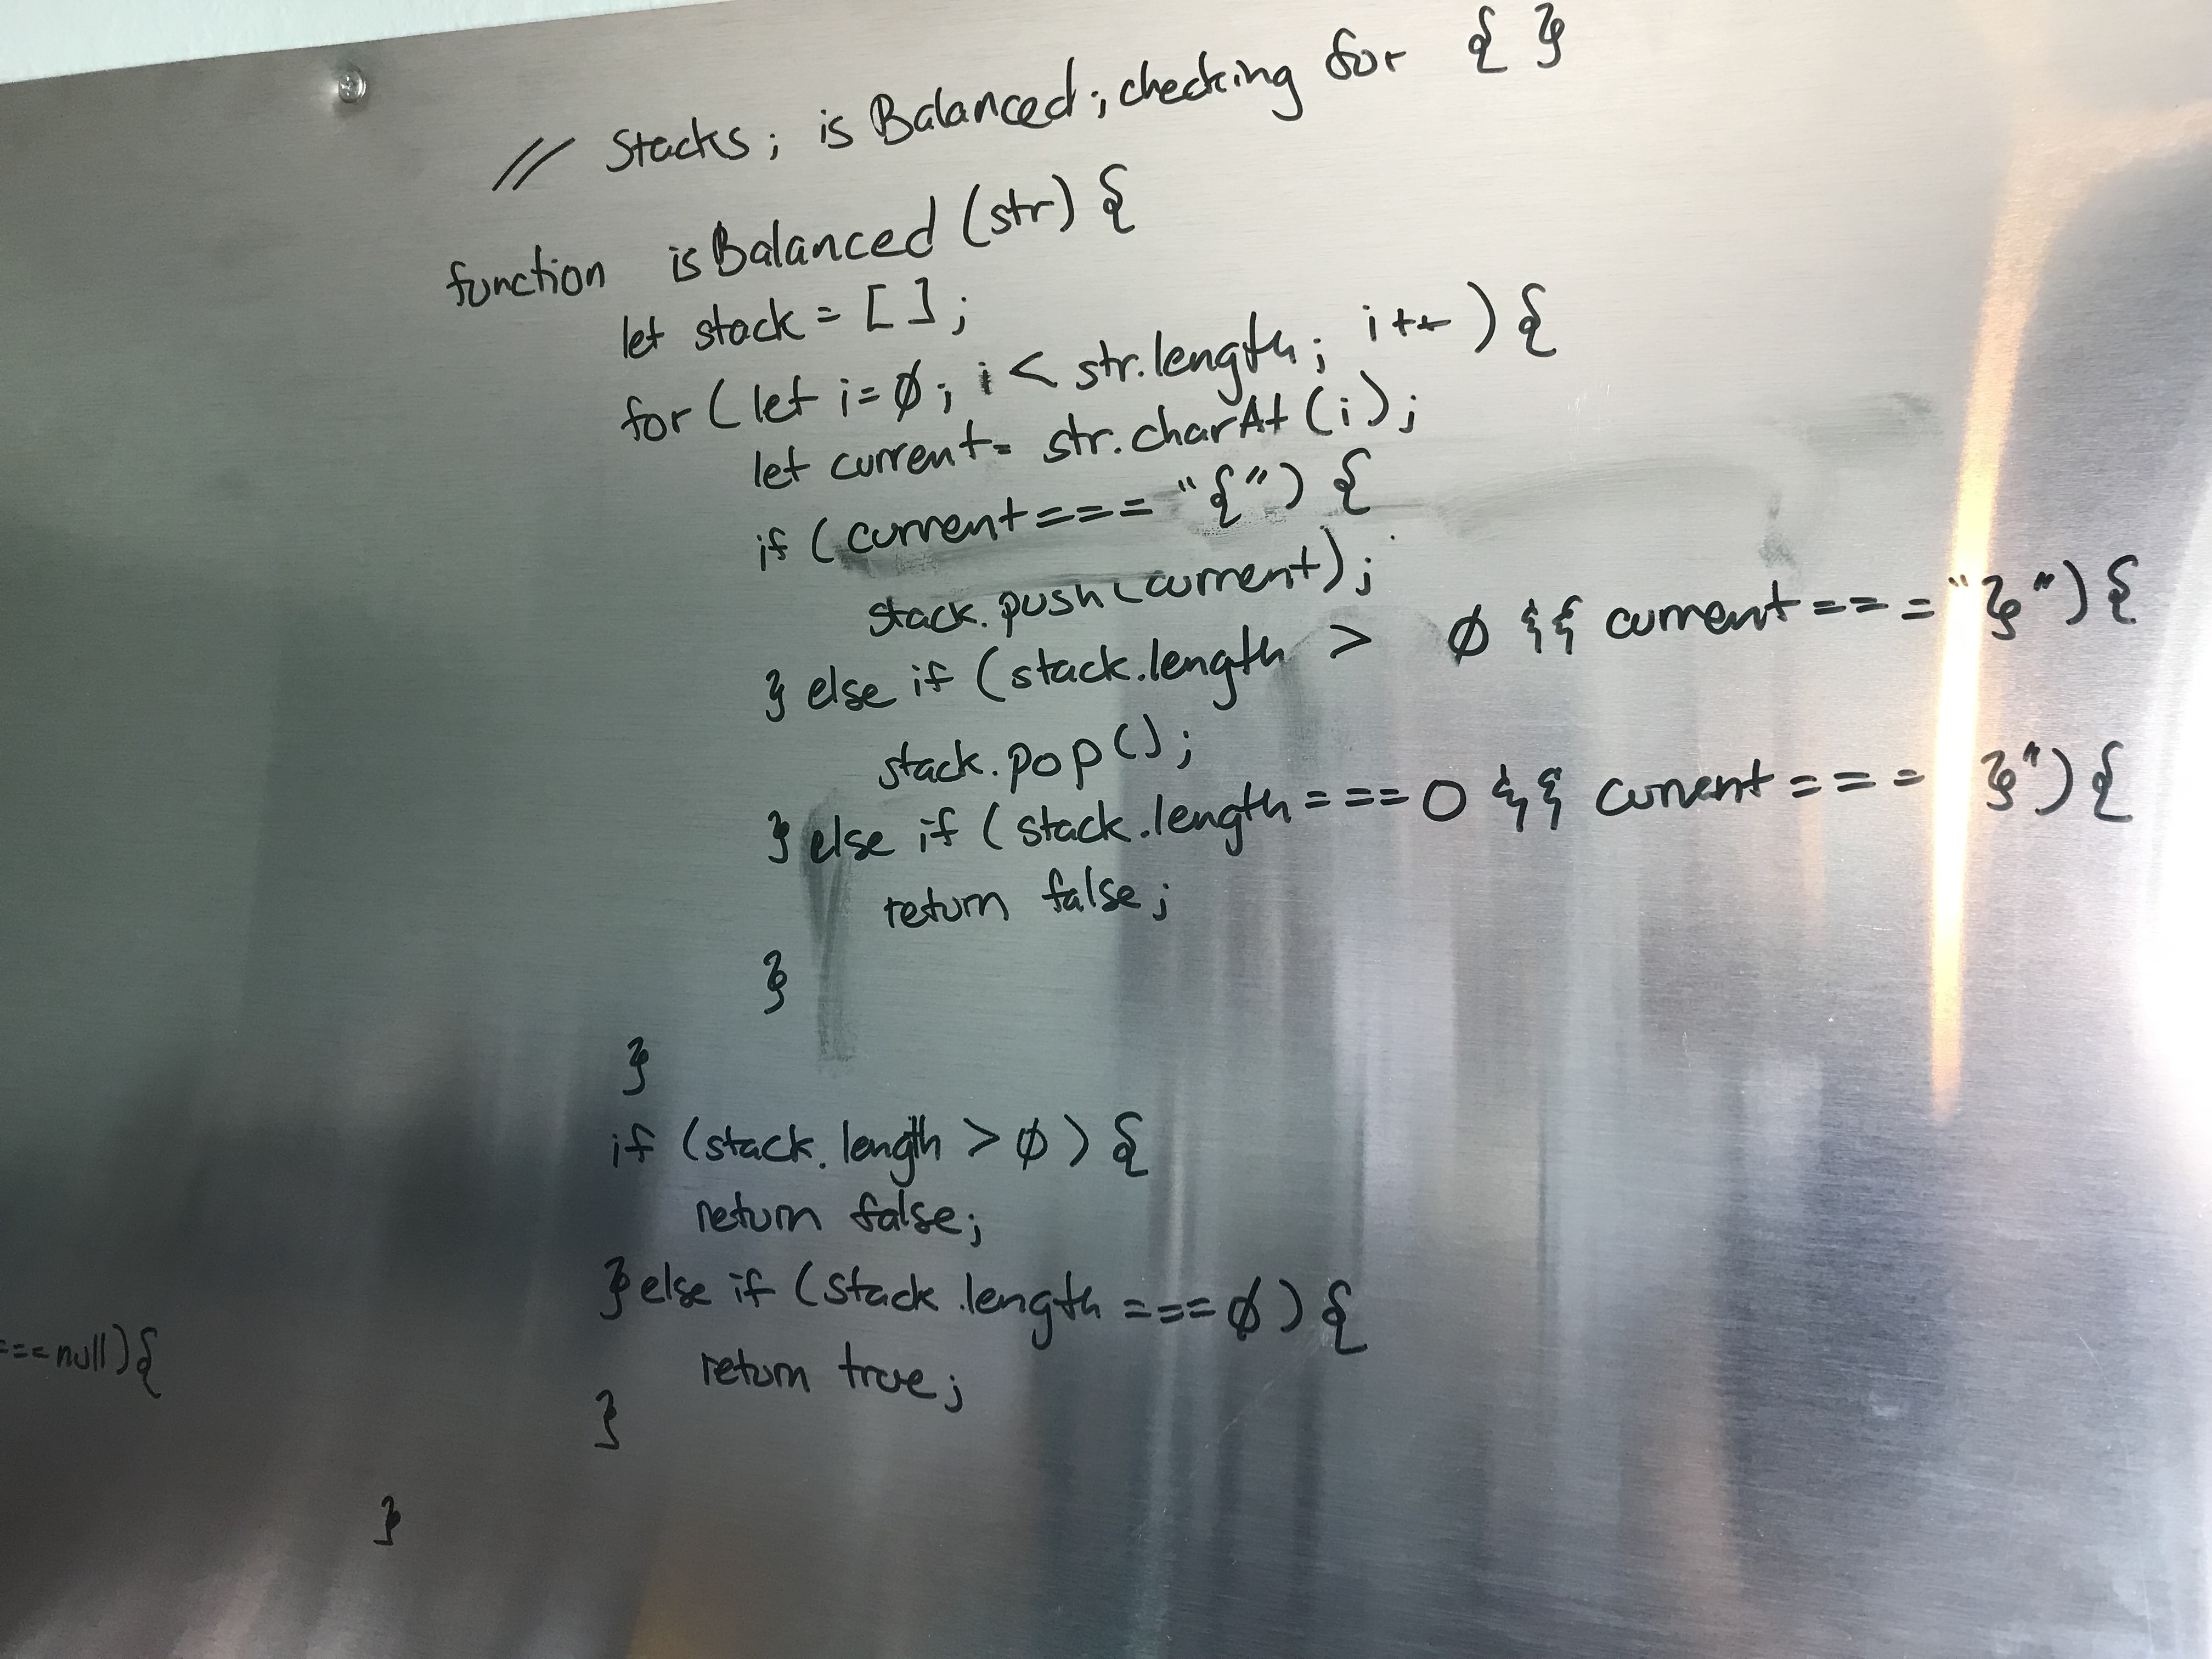 // Stacks; isBalanced; checking for { }
function isBalanced (str) {
let stack = [];
for (let i=0; i < str.length; i++) {
let current = str.charAt(i);
if (current === "{") {
stack.push(current);
} else if (stack.length > 0 && current === "}") {
stack.pop();
} else if (stack.length === 0 && current === }") {
return false;
}
}
if (stack.length > 0) {
return false;
} else if (stack.length === 0) {
return true;
}
}
===null){